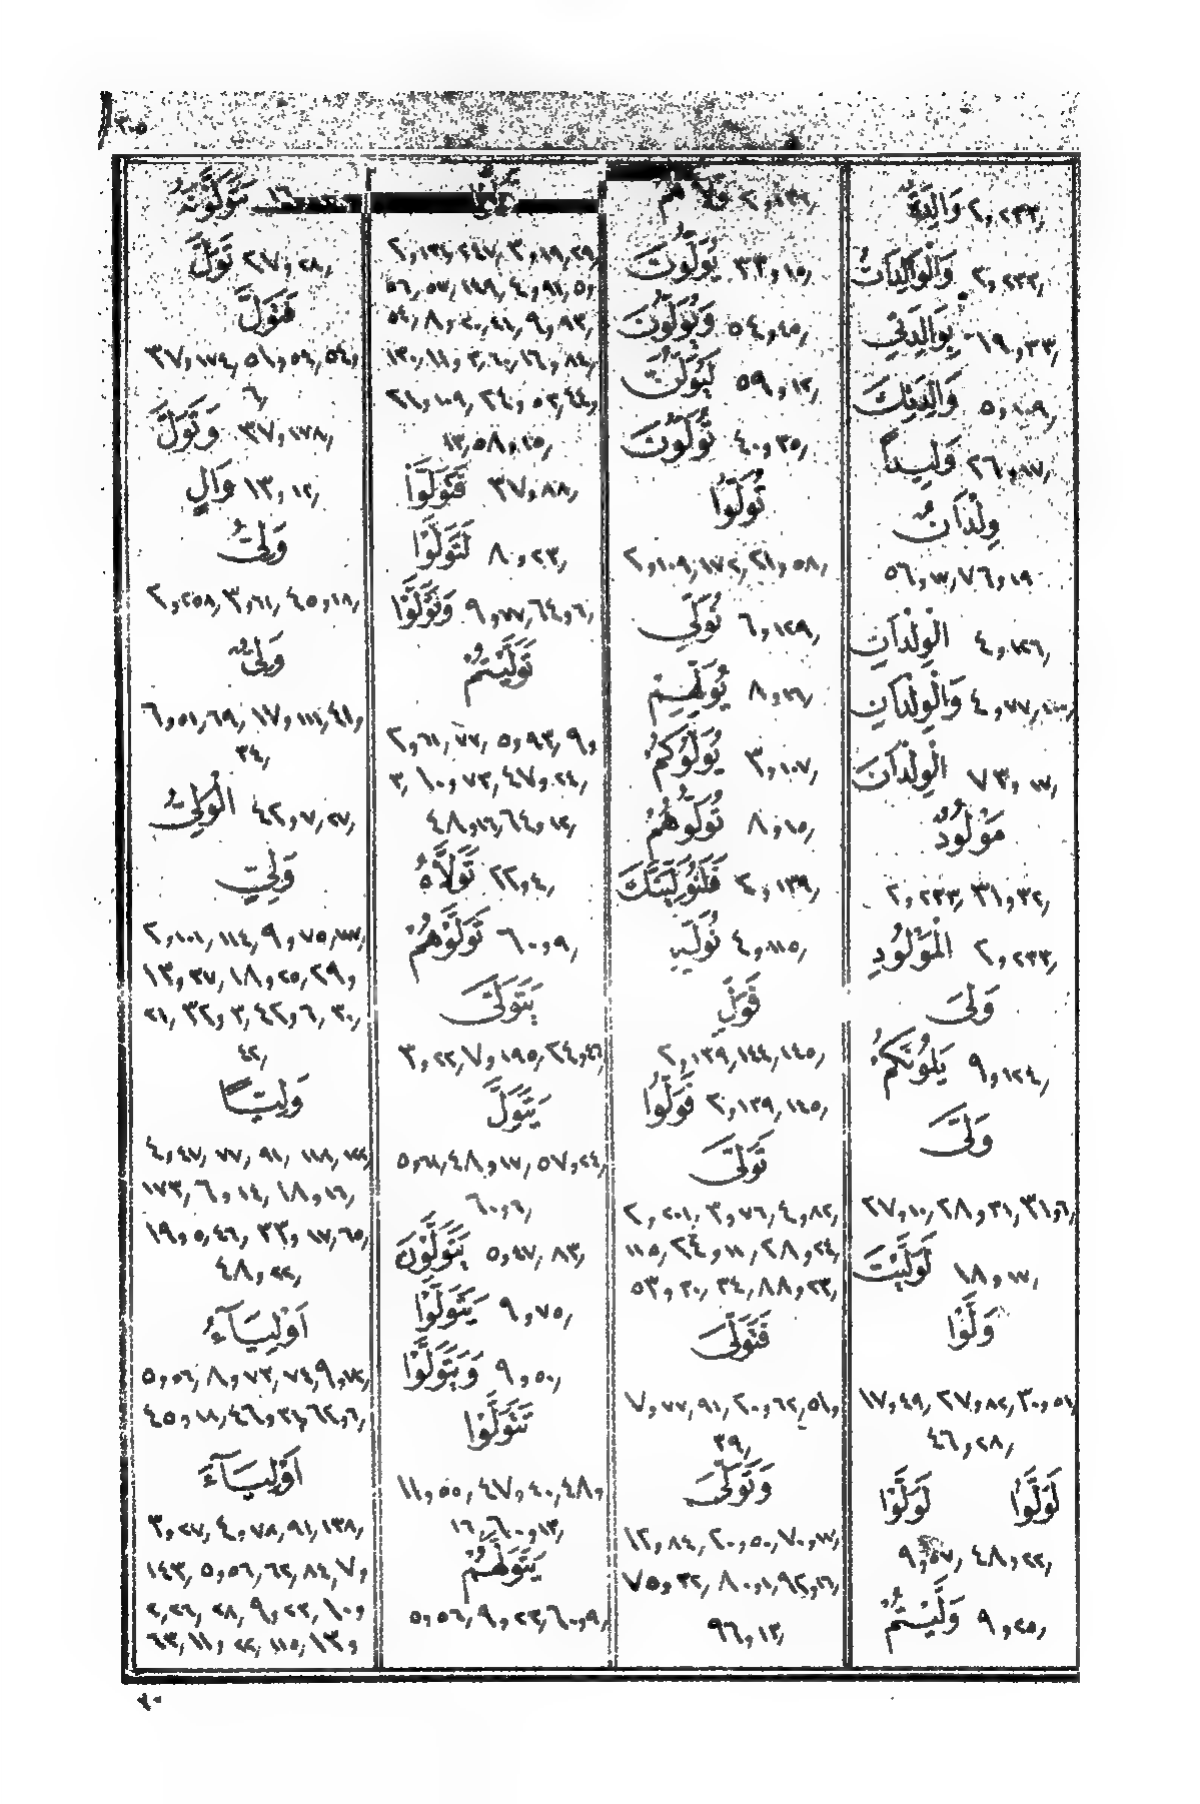 وَالِدَةٌ ٢,٢٣٣,
وَالْوَالِدَاتُ ٢,٢٣٣,
بِوَالِدَتِي ١٩,٣٣,
وَالِدَتِكَ ٥,١٠٩,
وَلِيداً ٢٦,١٧,
وِلْدَانٌ
٥٦,١٧,٧٦,١٩
الْوِلْدَانِ ٤,١٢٦,
وَالْوِلْدَانِ ٤,٧٧,١٠٠,
الْوِلْدَانَ ٧٣,١٧,
مَوْلُودٌ
٢,٢٣٣,٣١,٣٢,
الْمَوْلُودِ ٢,٢٣٣,
وَلِىَ
يَلُونَكُمْ ٩,١٢٤,
وَلَّى
٢٧,١٠,٢٨,٣١,٣١,٦,
لَوَلَّيْتَ ١٨,١٧,
وَلَّوْا
١٧,٤٩,٢٧,٨٢,٣٠,٥١,
٤٦,٢٨,
لَوَلَّوُا لَوَلَّوْا
٩,٥٧,٤٨,٢٢,
وَلَّيْتُمْ ٩,٢٥,
٢,١٣٦,
يُوَلُّونَ ٣٣,١٥,
وَيُوَلُّونَ ٥٤,٤٥,
لَيُوَلُّنَّ ٥٩,١٢,
تُوَلُّونَ ٤٠,٣٥,
تُوَلُّوا
٢,١٠٩,١٧٢,٢١,٥٨,
نُوَلِّى ٦,١٢٩,
يُوَلِّهِمْ ٨,١٦,
يُوَلُّوكُمُ ٣,١٠٧,
تُوَلُّوهُمُ ٨,١٥,
فَلَنُوَلِّيَنَّكَ ٢,١٣٩,
نُوَلِّهِ ٤,١١٥,
فَوَلِّ
٢,١٣٩,١٤٤,١٤٥,
فَوَلُّوا ٢,١٣٩,١٤٥,
تَوَلَّى
٢,٢٠١,٣,٧٦,٤,٨٢,
١١٥,٢٤,١١,٢٨,٢٤,
٥٣,٣٠,٣٤,٨٨,٢٣,
فَتَوَلَّى
٧,٧٧,٩١,٢٠,٦٢,٥١,
٣٩,
وَتَوَلَّى
١٢,٨٤,٢٠,٥٠,٧٠,١٧,
٧٥,٣٢,٨٠,١,٩٢,١٦,
٩٦,١٣,
تَوَلَّوْا
٢,١٣١,٢٤٧,٣,١٩,٢٩,
٥٦,٥٧,١٤٩,٤,٩١,٥,
٥٤,٨,٤٠,٤١,٩,٩٣,
١٣٠,١١,٣,٦٠,١٦,٨٤,
٢١,١٠٩,٢٤,٥٣,٤٤,
١٣,٥٨,١٥,
فَتَوَلَّوْا ٣٧,٨٨,
لَتَوَلَّوْا ٨,٢٣,
وَتَوَلَّوْا ٩,٧٧,٦٤,٦,
تَوَلَّيْتُمْ
٢,٦١,٧٧,٥,٩٣,٩,
٣,١٠,٧٣,٤٧,٢٤,
٤٨,١٦,٦٤,١٢,
تَوَلَّاهُ ٢٢,٤,
تَوَلَّوْهُمْ ٦٠,٩,
يَتَوَلَّى
٣,٢٢,٧,١٩٥,٢٤,٤٦,
يَتَوَلَّ
٥,٦١,٤٨,١٧,٥٧,٢٤,
٦٠,٦,
يَتَوَلَّوْنَ ٥,٤٧,٨٣,
يَتَوَلَّوْا ٩,٧٥,
وَيَتَوَلَّوْا ٩,٥٠,
تَتَوَلَّوْا
١١,٥٥,٤٧,٤٠,٤٨,
١٦,٦٠,١٣,
يَتَوَلَّهُمْ
٥,٥٦,٩,٢٣,٦٠,٩,
يَتَوَلَّوْنَهُ ١٦
تَوَلَّ ٢٧,٢٨,
فَتَوَلَّ
٣٧,١٧٤,٥١,٥٤,٥٤,
٦,
وَتَوَلَّ ٣٧,١٧٨,
وَالٍ ١٣,١٢,
وَلِىٌّ
٢,٢٥٨,٣,٦١,٤٥,١٨,
وَلِىٌّ
٦,٥١,٦٩,١٧,١١١,٤١,
٣٤,
الْوَلِىُّ ٤٢,٧,٢٧,
وَلِىٍّ
٢,١٠١,١١٤,٩,٧٥,١١٧,
١٣,٣٧,١٨,٢٥,٢٩,
٢١,٣٢,٣,٤٢,٦,٣٠,
٤٢,
وَلِيّاً
٤,٤٧,٧٧,٩١,١١٨,١٢٢,
١٧٣,٦,١٤,١٨,١٦,
١٩,٥,٤٦,٣٣,١٧,٦٥,
٤٨,٢٢,
اَوْلِيَآءُ
٥,٥٦,٨,٧٣,٧٤,٩,٧٢,
٤٥,١٨,٤٦,٣١,٦٢,٦,
اَوْلِيَآءَ
٣,٢٧,٤,٧٨,٩١,١٣٨,
١٤٣,٥,٥٦,٦٢,٨٤,٧,
٢,٢٦,٢٨,٩,٢٣,١٠,
٦٣,١١,٢٢,١١٥,١٣,
٢٠